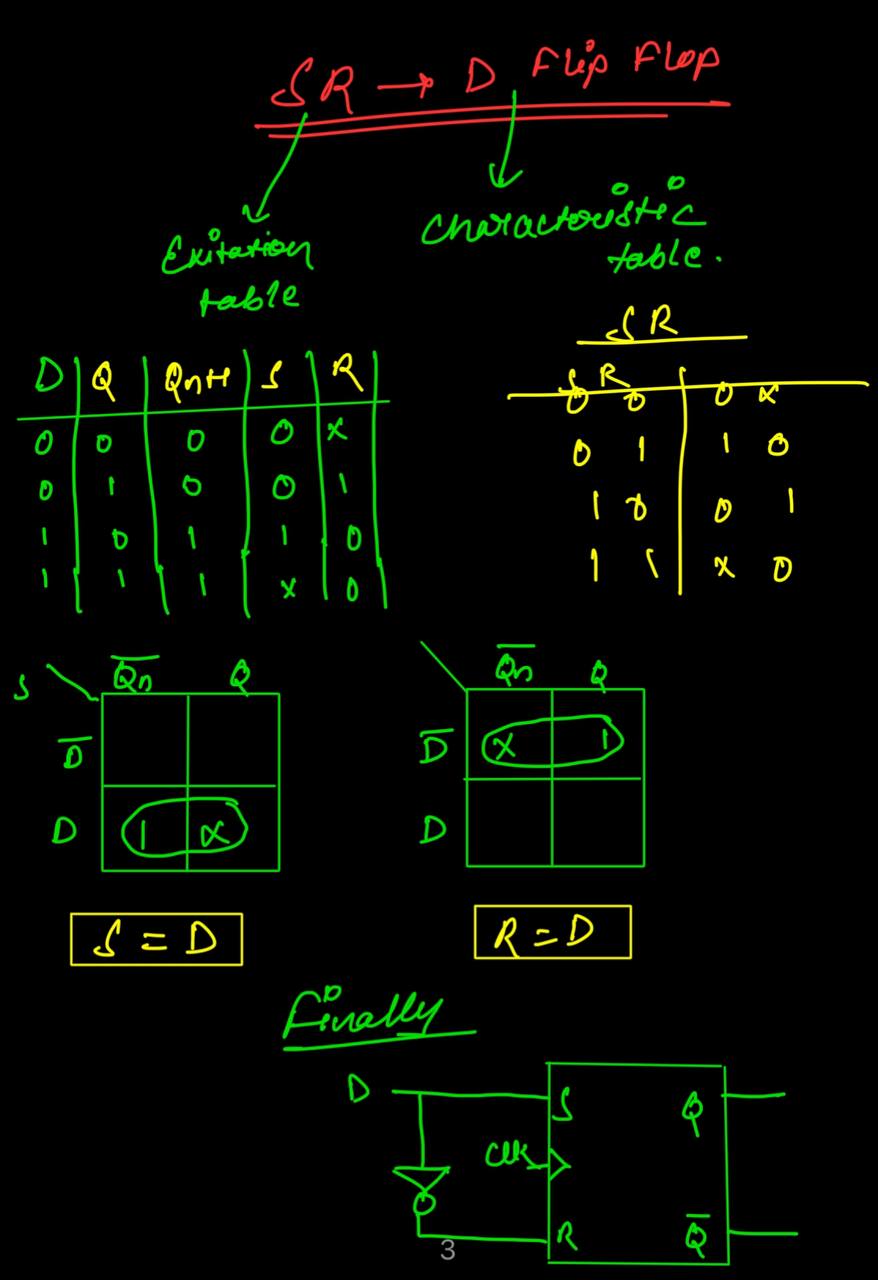 SR → D Flip Flop
Exitation
table
Characteristic
table.
D Q Qn+1 S R
0 0 0 0 x
0 1 0 0 1
1 0 1 1 0
1 1 1 x 0
SR
S R
0 0 0 x
0 1 1 0
1 0 0 1
1 1 x 0
S Q̅n Q
D̅
D 1 x
Q̅n Q
D̅ x 1
D
S = D
R = D
Finally
D S Q
Clk
R Q̅
3